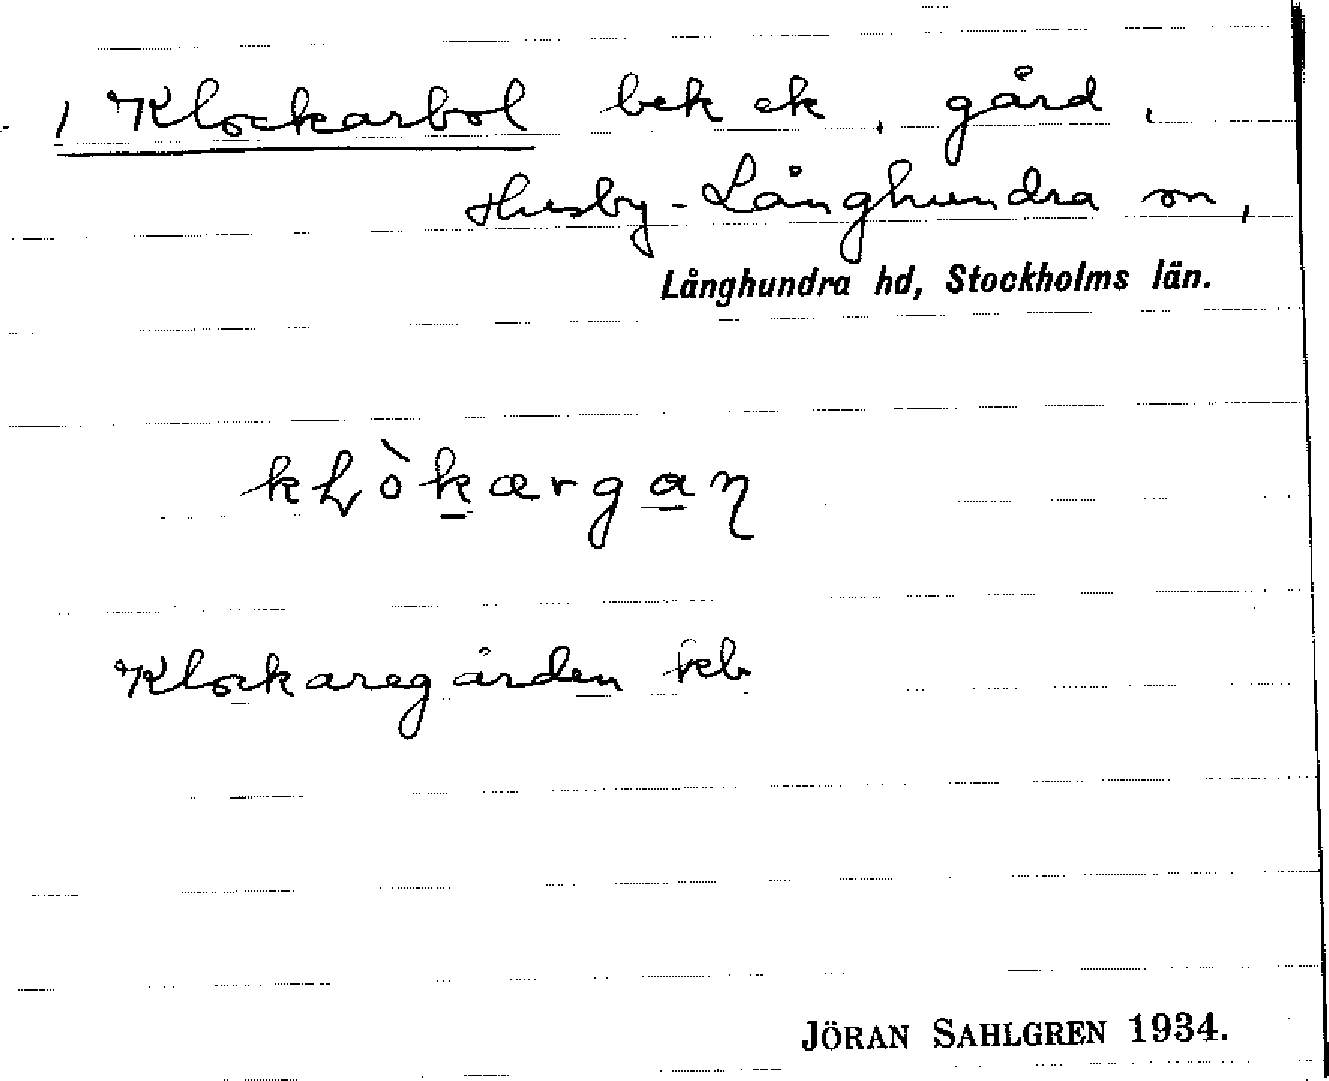 1 Klockarbol bek ek, gård,
Husby-Långhundra sn,
Långhundra hd, Stockholms län.
kḷòkærgaɳ
Klockaregården kb
JÖRAN SAHLGREN 1934.